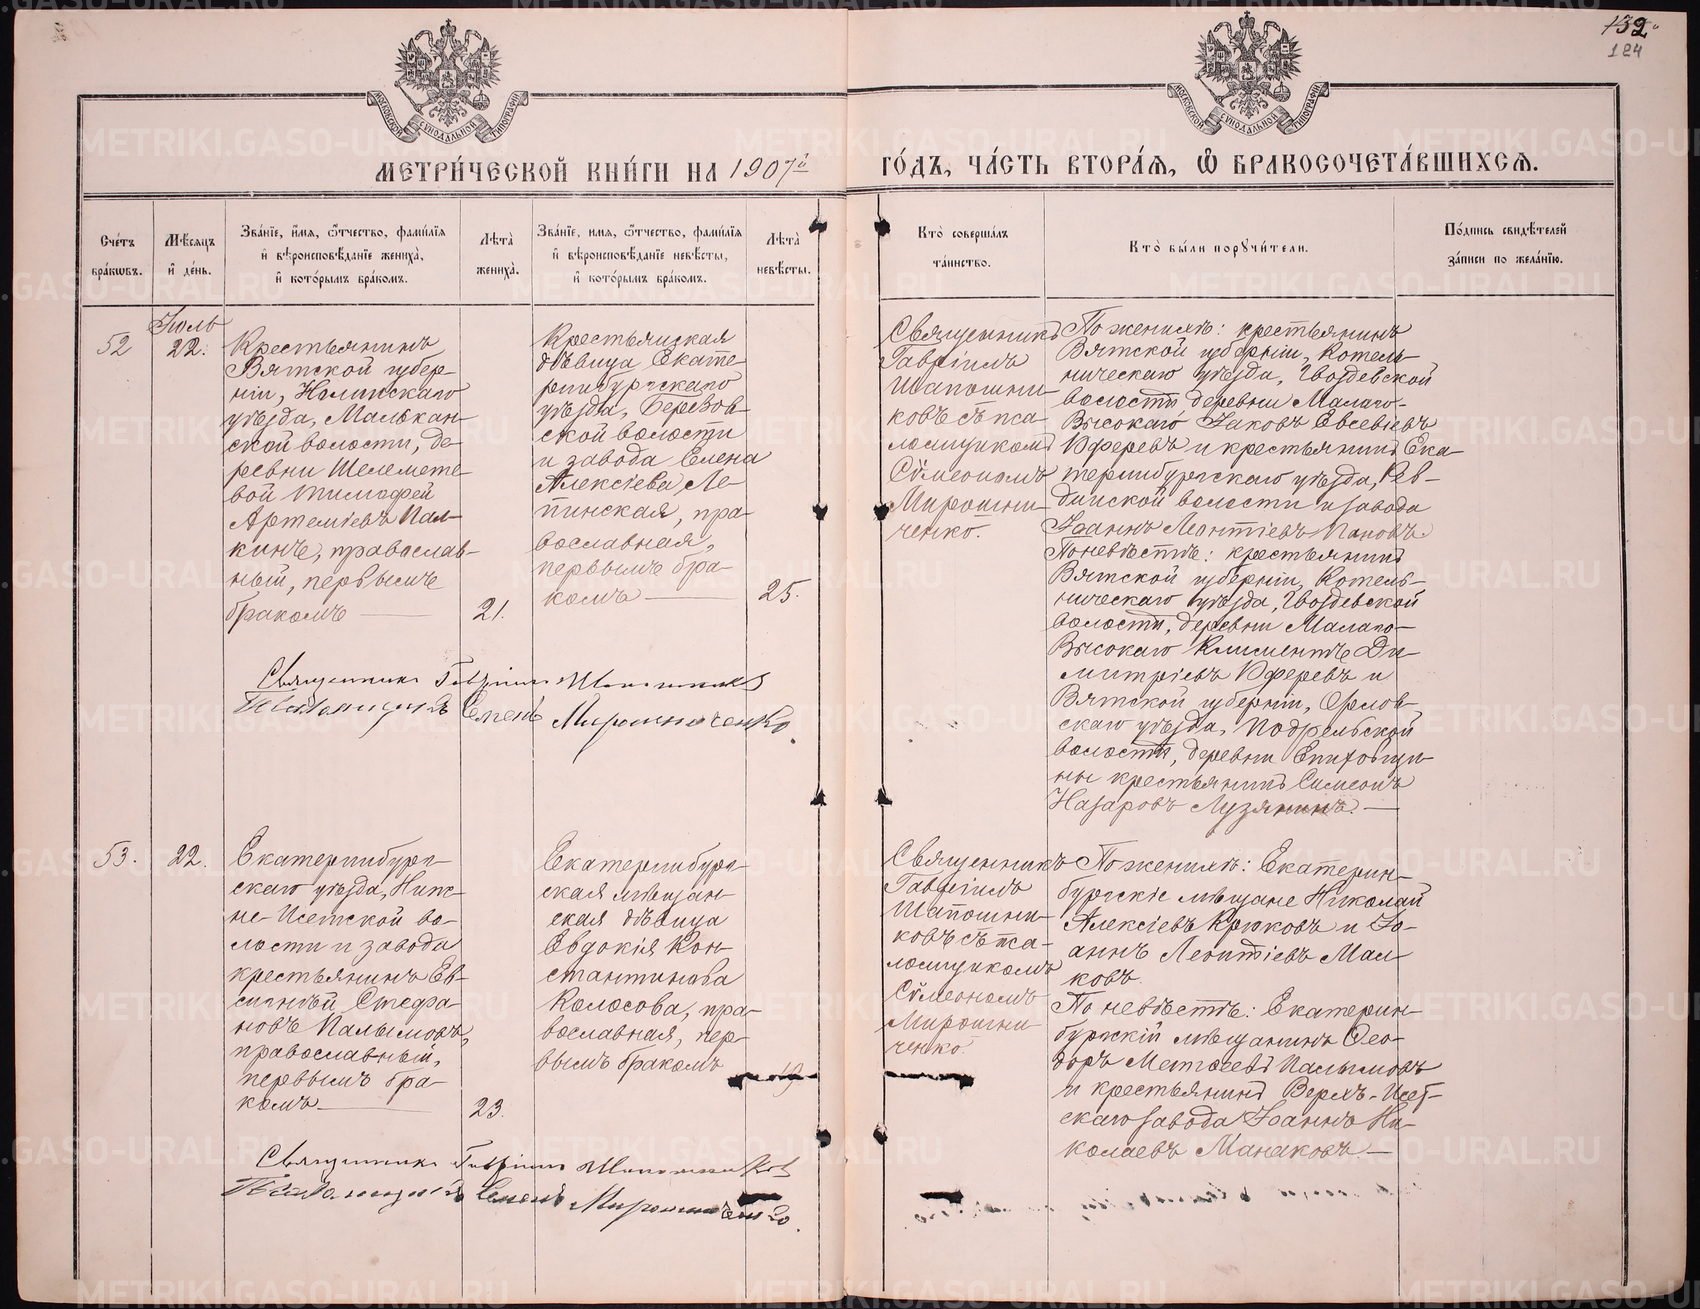 132
124
МОСКОВСКОЙ СУНОДАЛЬНОЙ ТИПОГРАФІИ
МОСКОВСКОЙ СУНОДАЛЬНОЙ ТИПОГРАФІИ
МЕТРИ́ЧЕСКОЙ КНИ́ГИ НА 1907й ГО́ДЪ, ЧА́СТЬ ВТОРА́Я, Ѽ БРАКОСОЧЕТА́ВШИХСѦ.
Сче́тъ
бра́кѡвъ.
Мѣ́сѧцъ
и҆ де́нь.
Зва́нїе, и҆́мѧ, ѻ҆́тчество, фами́лїѧ
и҆ вѣроисповѣ́данїе жениха̀,
и҆ кото́рымъ бра́комъ.
Лѣ́та̀
жениха̀.
Зва́нїе, и҆́мѧ, ѻ҆́тчество, фами́лїѧ
и҆ вѣроисповѣ́данїе невѣ́сты,
и҆ кото́рымъ бра́комъ.
Лѣ́та̀
невѣ́сты.
Кто̀ соверша́лъ
та́инство.
Кто̀ бы́ли порꙋчи́тели.
По́дпись свидѣ́телей
за́писи по жела́нїю.
52
Іюль
22.
Крестьянинъ
Вятской губер-
ніи, Нолинскаго
уѣзда, Малькан-
ской волости, де-
ревни Шелемете-
вой Тимофей
Артеміевъ Пал-
кинъ, православ-
ный, первымъ
бракомъ
21.
Крестьянская
дѣвица Екате-
ринбургскаго
уѣзда, Березов-
ской волости
и завода Елена
Алексіева Ле-
пинская, пра-
вославная,
первымъ бра-
комъ
25.
Священникъ
Гавріилъ
Шапошни-
ковъ съ пса-
ломщикомъ
Сѵмеономъ
Мирошни-
ченко.
По женихѣ: крестьянинъ
Вятской губерніи, Котель-
ническаго уѣзда, Гвоздевской
волости деревни Малаго-
Высокаго Іаковъ Евсевіевъ
Оферевъ и крестьянинъ Ека-
теринбургскаго уѣзда, Рев-
динской волости и завода
Іоаннъ Леонтіевъ Пановъ.
По невѣстѣ: крестьянинъ
Вятской губерніи, Котель-
ническаго уѣзда, Гвоздевской
волости, деревни Малаго-
Высокаго Климентъ Ди-
митріевъ Оферевъ и
Вятской губерніи, Орлов-
скаго уѣзда, Подрельской
волости, деревни Епихощи-
ны крестьянинъ Симеонъ
Назаровъ Лузянинъ.
Священникъ Гавріилъ Шапошниковъ
Псаломщикъ Семенъ Мирошниченко.
53.
22.
Екатеринбург-
скаго уѣзда, Ниж-
не-Исетской во-
лости и завода
крестьянинъ Ев-
сигній Стефа-
новъ Палымовъ,
православный,
первымъ бра-
комъ
23.
Екатеринбург-
ская мѣщан-
ская дѣвица
Евдокія Кон-
стантинова
Колосова, пра-
вославная, пер-
вымъ бракомъ
19
Священникъ
Гавріилъ
Шапошни-
ковъ съ пса-
ломщикомъ
Сѵмеономъ
Мирошни-
ченко.
По женихѣ: Екатерин-
бургскіе мѣщане Николай
Алексіевъ Крюковъ и Іо-
аннъ Леонтіевъ Мал-
ковъ.
По невѣстѣ: Екатерин-
бургскій мѣщанинъ Ѳео-
доръ Матѳеевъ Палымовъ
и крестьянинъ Верхъ-Исет-
скаго завода Іоаннъ Ни-
колаевъ Манаковъ.
Священникъ Гавріилъ Шапошниковъ
Псаломщикъ Семенъ Мирошниченко.
METRIKI.GASO-URAL.RU